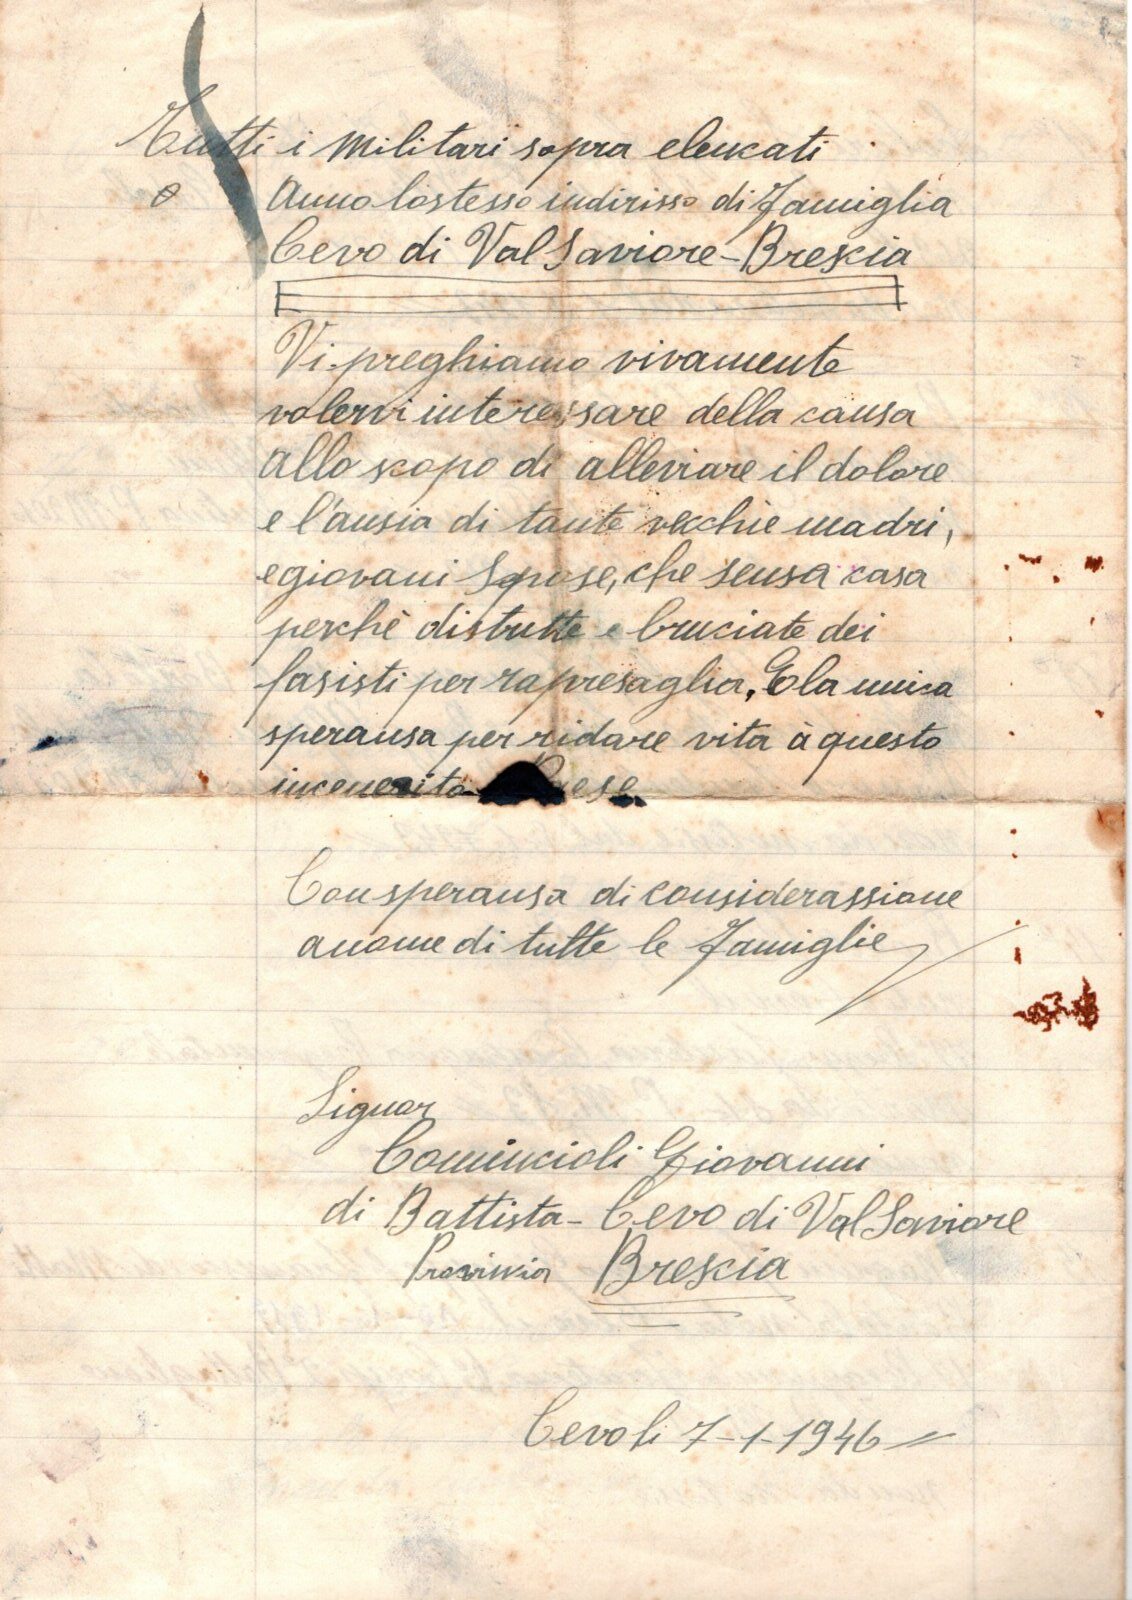 Tutti i militari sopra elencati
anno lostesso indirisso di Famiglia
Cevo di Val Saviore-Brescia
Vi preghiamo vivamente
volervi interessare della causa
allo scopo di alleviare il dolore
e l'ansia di tante vecchie madri,
e giovani Spose, che sensa casa
perchè distrutte e bruciate dei
fasisti per rapresaglia, E la unica
speransa per ridare vita à questo
incenerito Paese.
Con speransa di considerassione
a nome di tutte le Famiglie
Signor
Comincioli Giovanni
di Battista - Cevo di Val Saviore
Provincia Brescia
Cevo li 7-1-1946